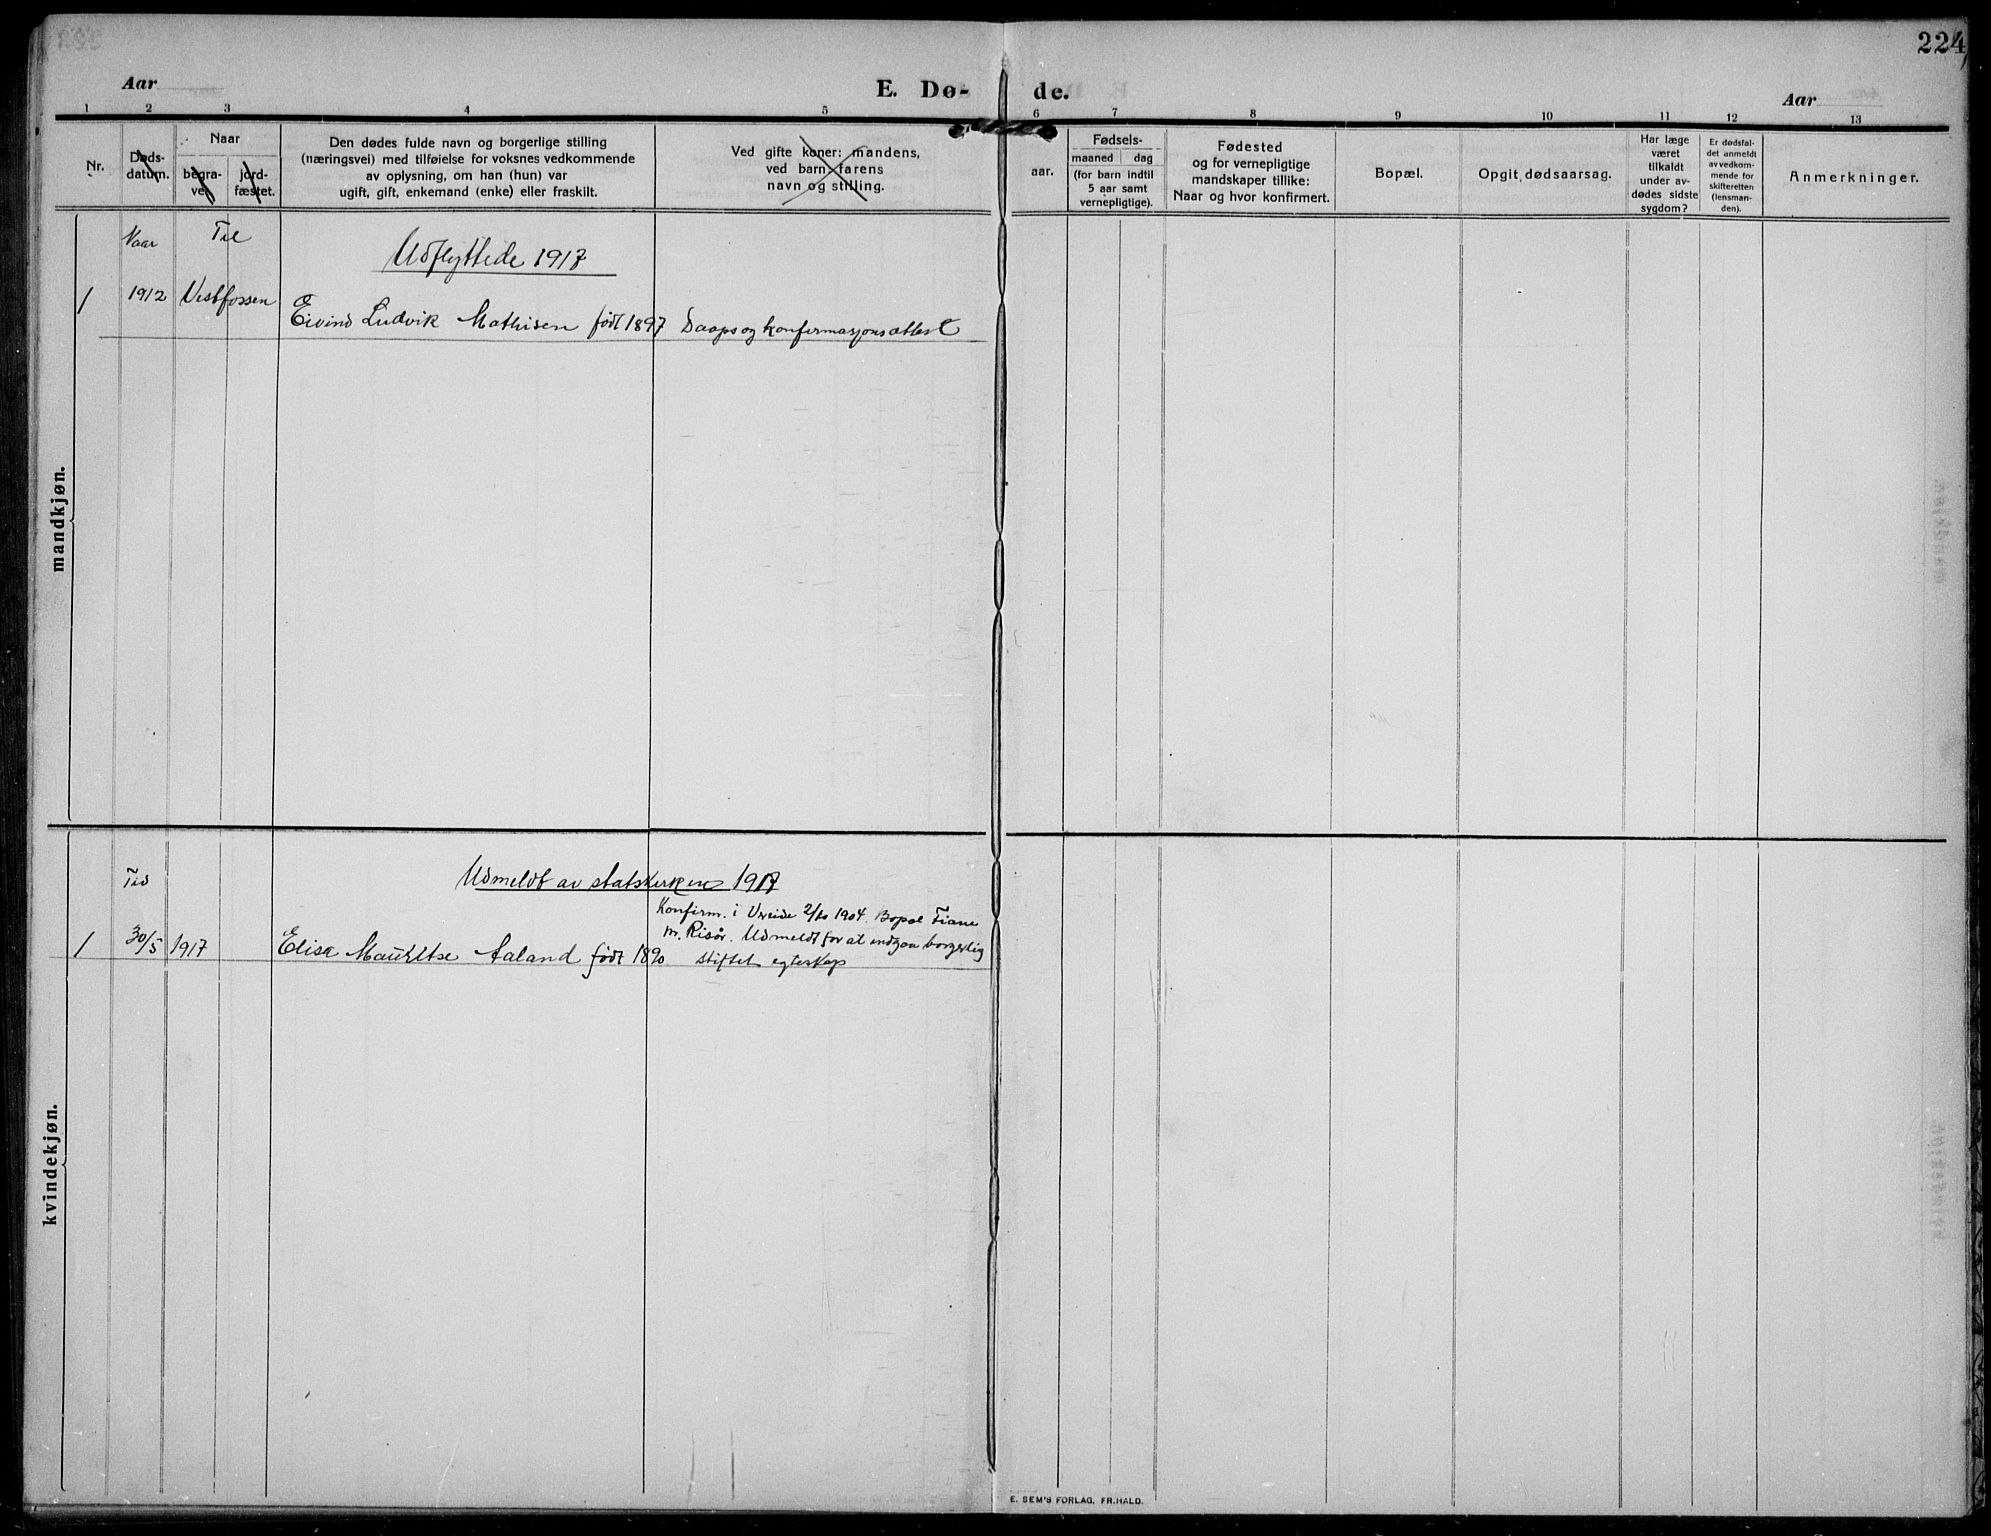 224
Aar
E. Dø-
de.
Aar
1 2 3 4 5 6 7 8 9 10 11 12 13
Nr.
Døds-
datum.
Naar
begra-
vet.
jord-
fæstet.
Den dødes fulde navn og borgerlige stilling
(næringsvei) med tilføielse for voksnes vedkommende
av oplysning, om han (hun) var
ugift, gift, enkemand (enke) eller fraskilt.
Ved gifte koner: mandens,
ved barn: farens
navn og stilling.
aar.
Fødsels-
maaned dag
(for barn indtil
5 aar samt
vernepligtige).
Fødested
og for vernepligtige
mandskaper tillike:
Naar og hvor konfirmert.
Bopæl.
Opgit dødsaarsag.
Har læge
været
tilkaldt
under av-
dødes sidste
sygdom?
Er dødsfal-
det anmeldt
av vedkom-
mende for
skifteretten
(lensman-
den).
Anmerkninger.
Naar
Til
Udflyttede 1917
1 1912 Vestfossen
Eivind Ludvik Mathisen født 1897 Daaps og konfirmasjonsattest
mandkjøn.
Udmeldt av statskirken 1917
Tid
Konfirm. i 2/10 1904. Bopæl Fiane
pr. Risør. Udmeldt for at indgaa borgerlig
1 30/5 1917 Elise Aaland født 1890 stiftet egteskap
kvindekjøn.
E. SEM'S FORLAG, FR.HALD.